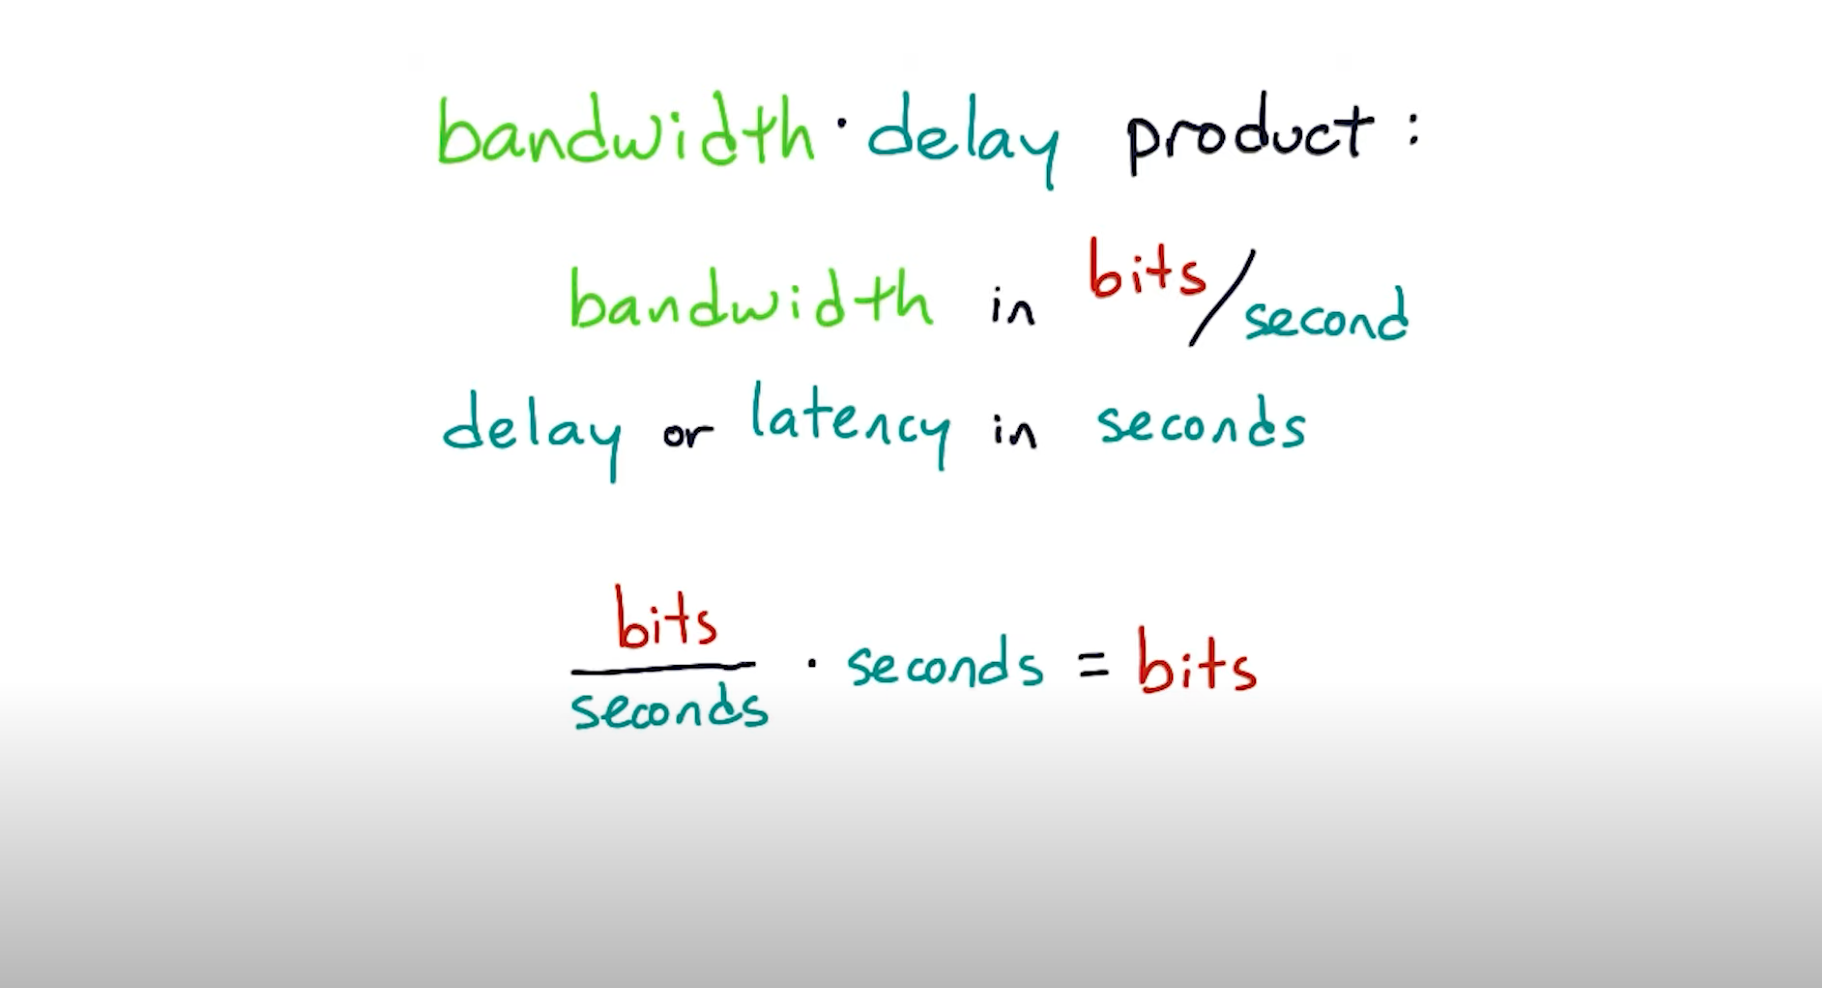 bandwidth · delay product:
bandwidth in bits/second
delay or latency in seconds
bits
seconds
· seconds = bits